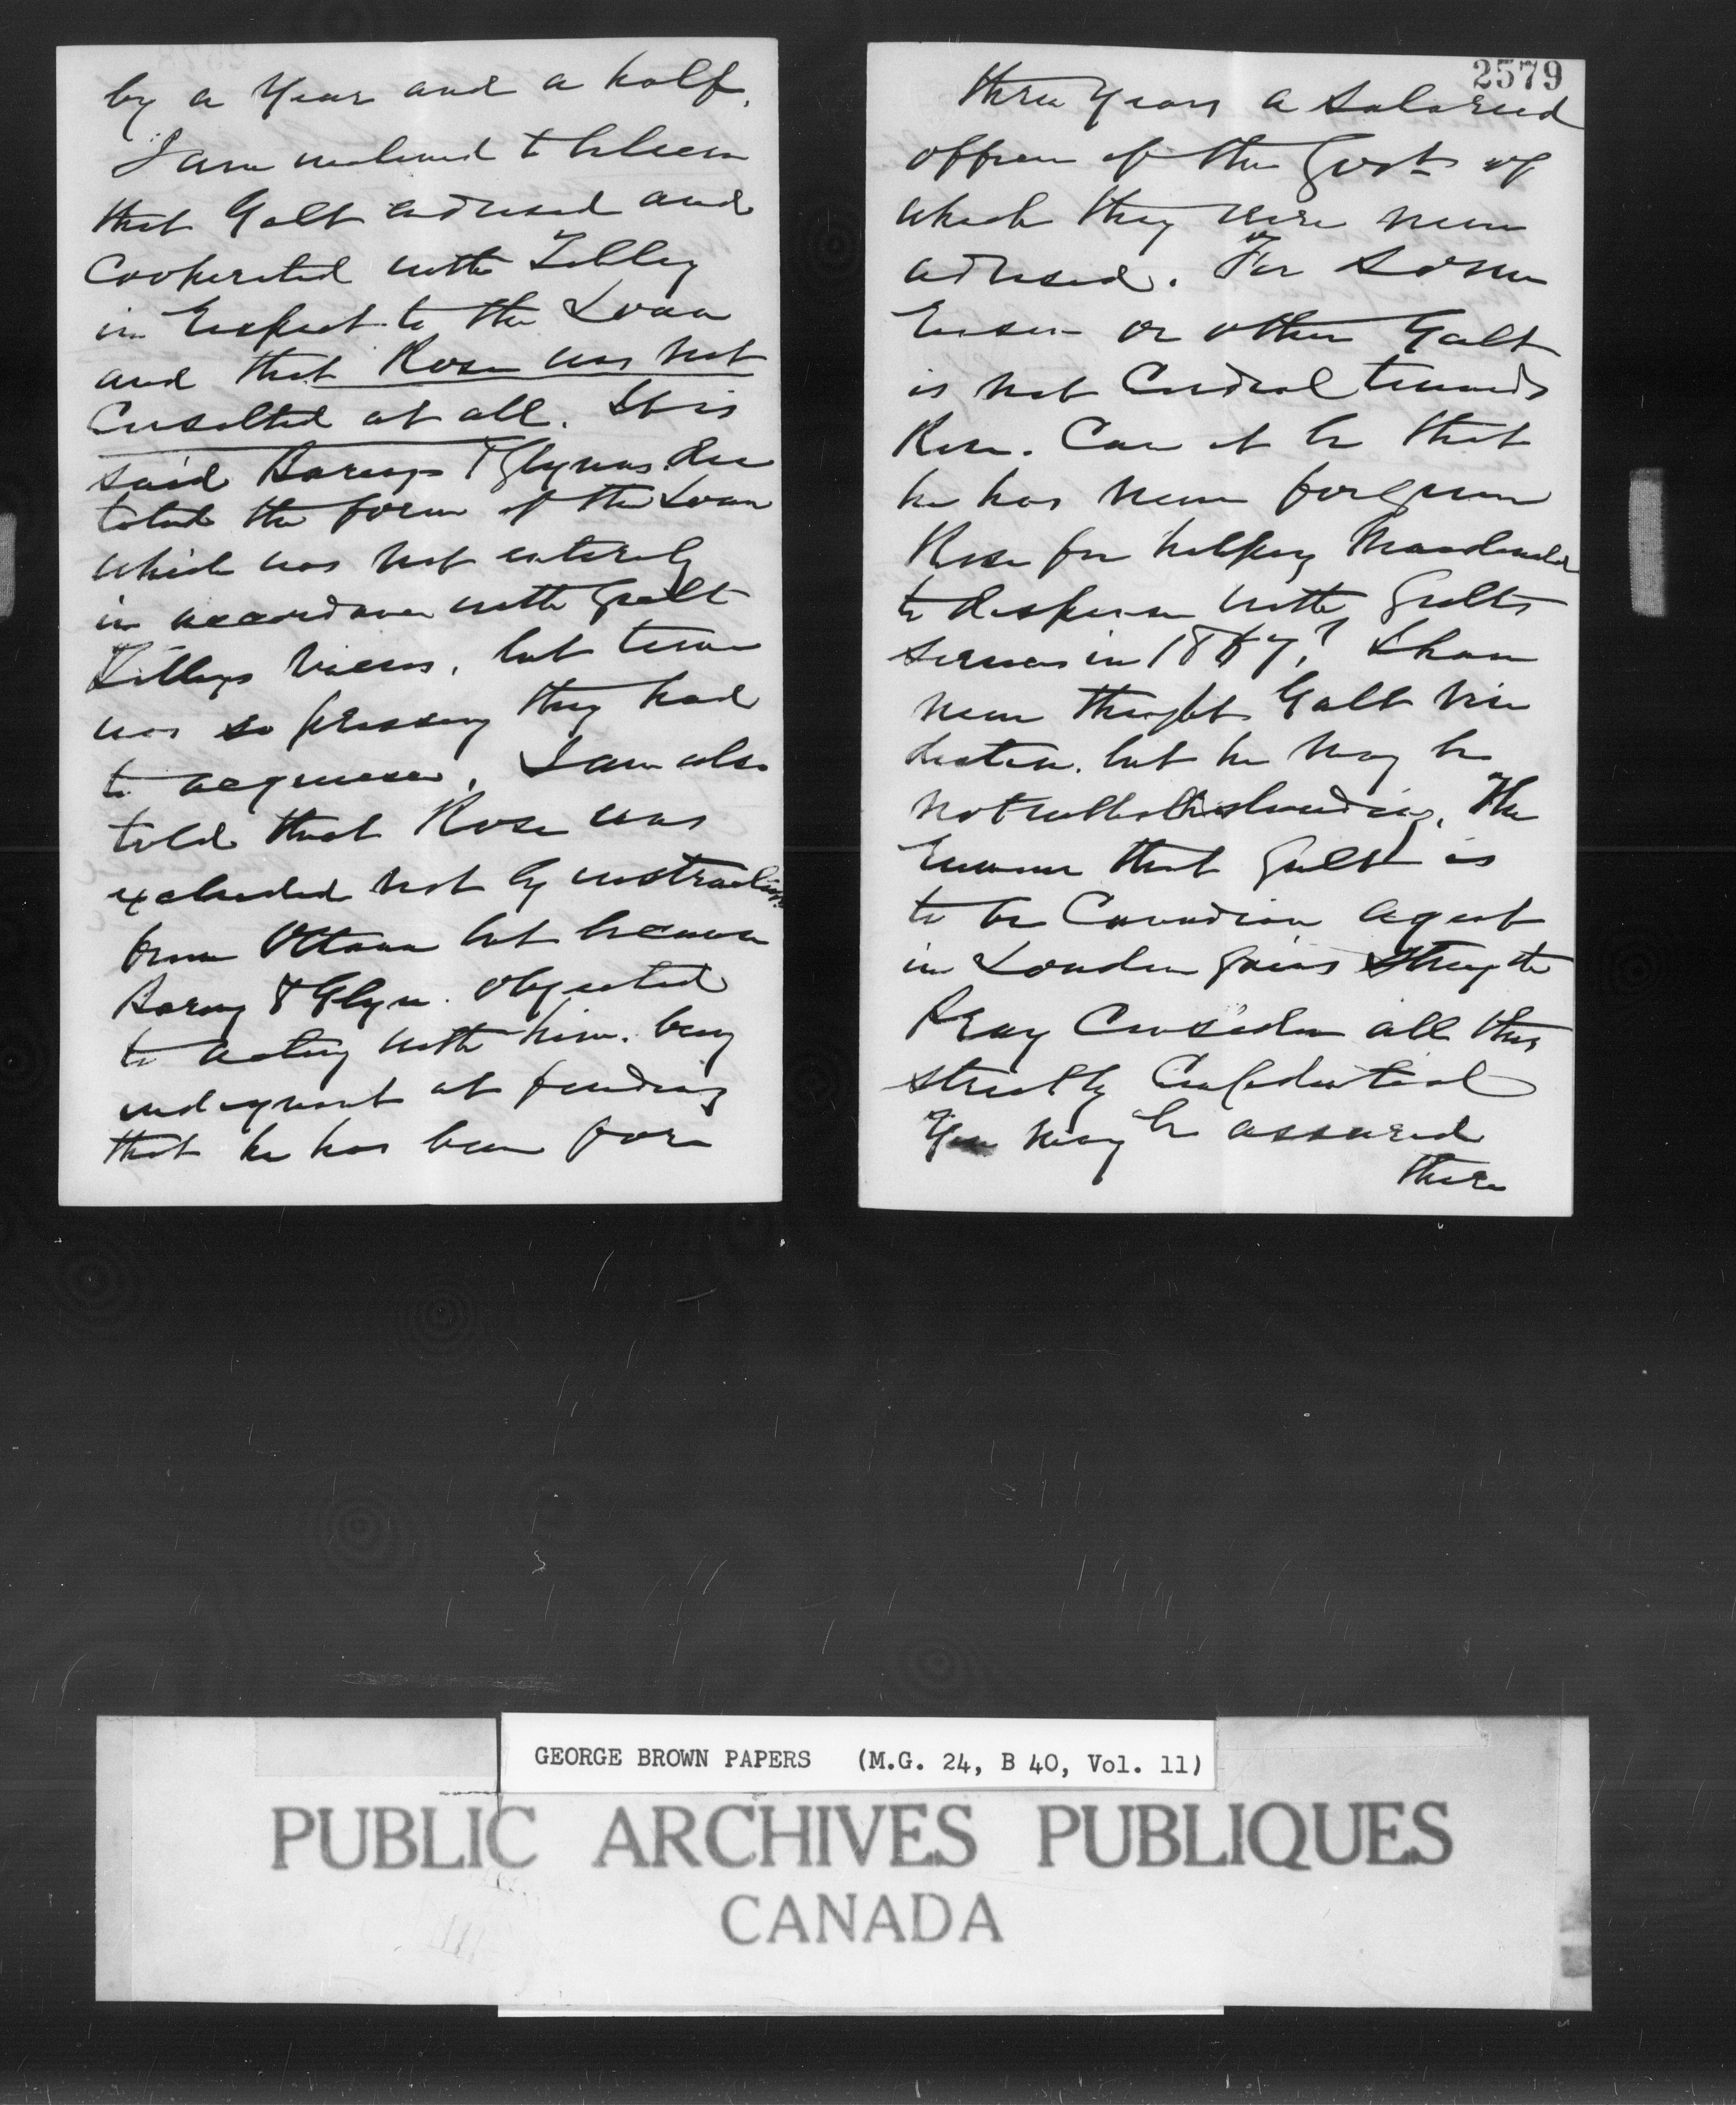 by a Year and a half.
I am inclined to believe
that Galt advised and
Cooperated with Tilley
in respect to the Loan
and that Rose was not
Consulted at all. It is
said Barings & Glynns dic
tated the form of the Loan
which was not entirely
in accordance with Galt
Tilleys views, but time
was so pressing they had
to acquiesce. I am also
told that Rose was
excluded not by instructions
from Ottawa but because
Baring & Glyn. Objected
to acting with him. being
indignant at finding
that he has been for
2579
three years a Salaried
officer of the Govt of
which they were never
advised. For some
reason or other Galt
is not Cordial towards
Rose. Can it be that
he has never forgiven
Rose for helping Macdonald
to dispense with Galts
services in 1867? I have
never thought Galt vin
dictive. but he may be
notwithstanding. The
rumour that Galt is
to be Canadian agent
in London gains strength
Pray Consider all this
strictly Confidential
You may be assured
there
GEORGE BROWN PAPERS (M.G. 24, B 40, Vol. 11)
PUBLIC ARCHIVES PUBLIQUES
CANADA